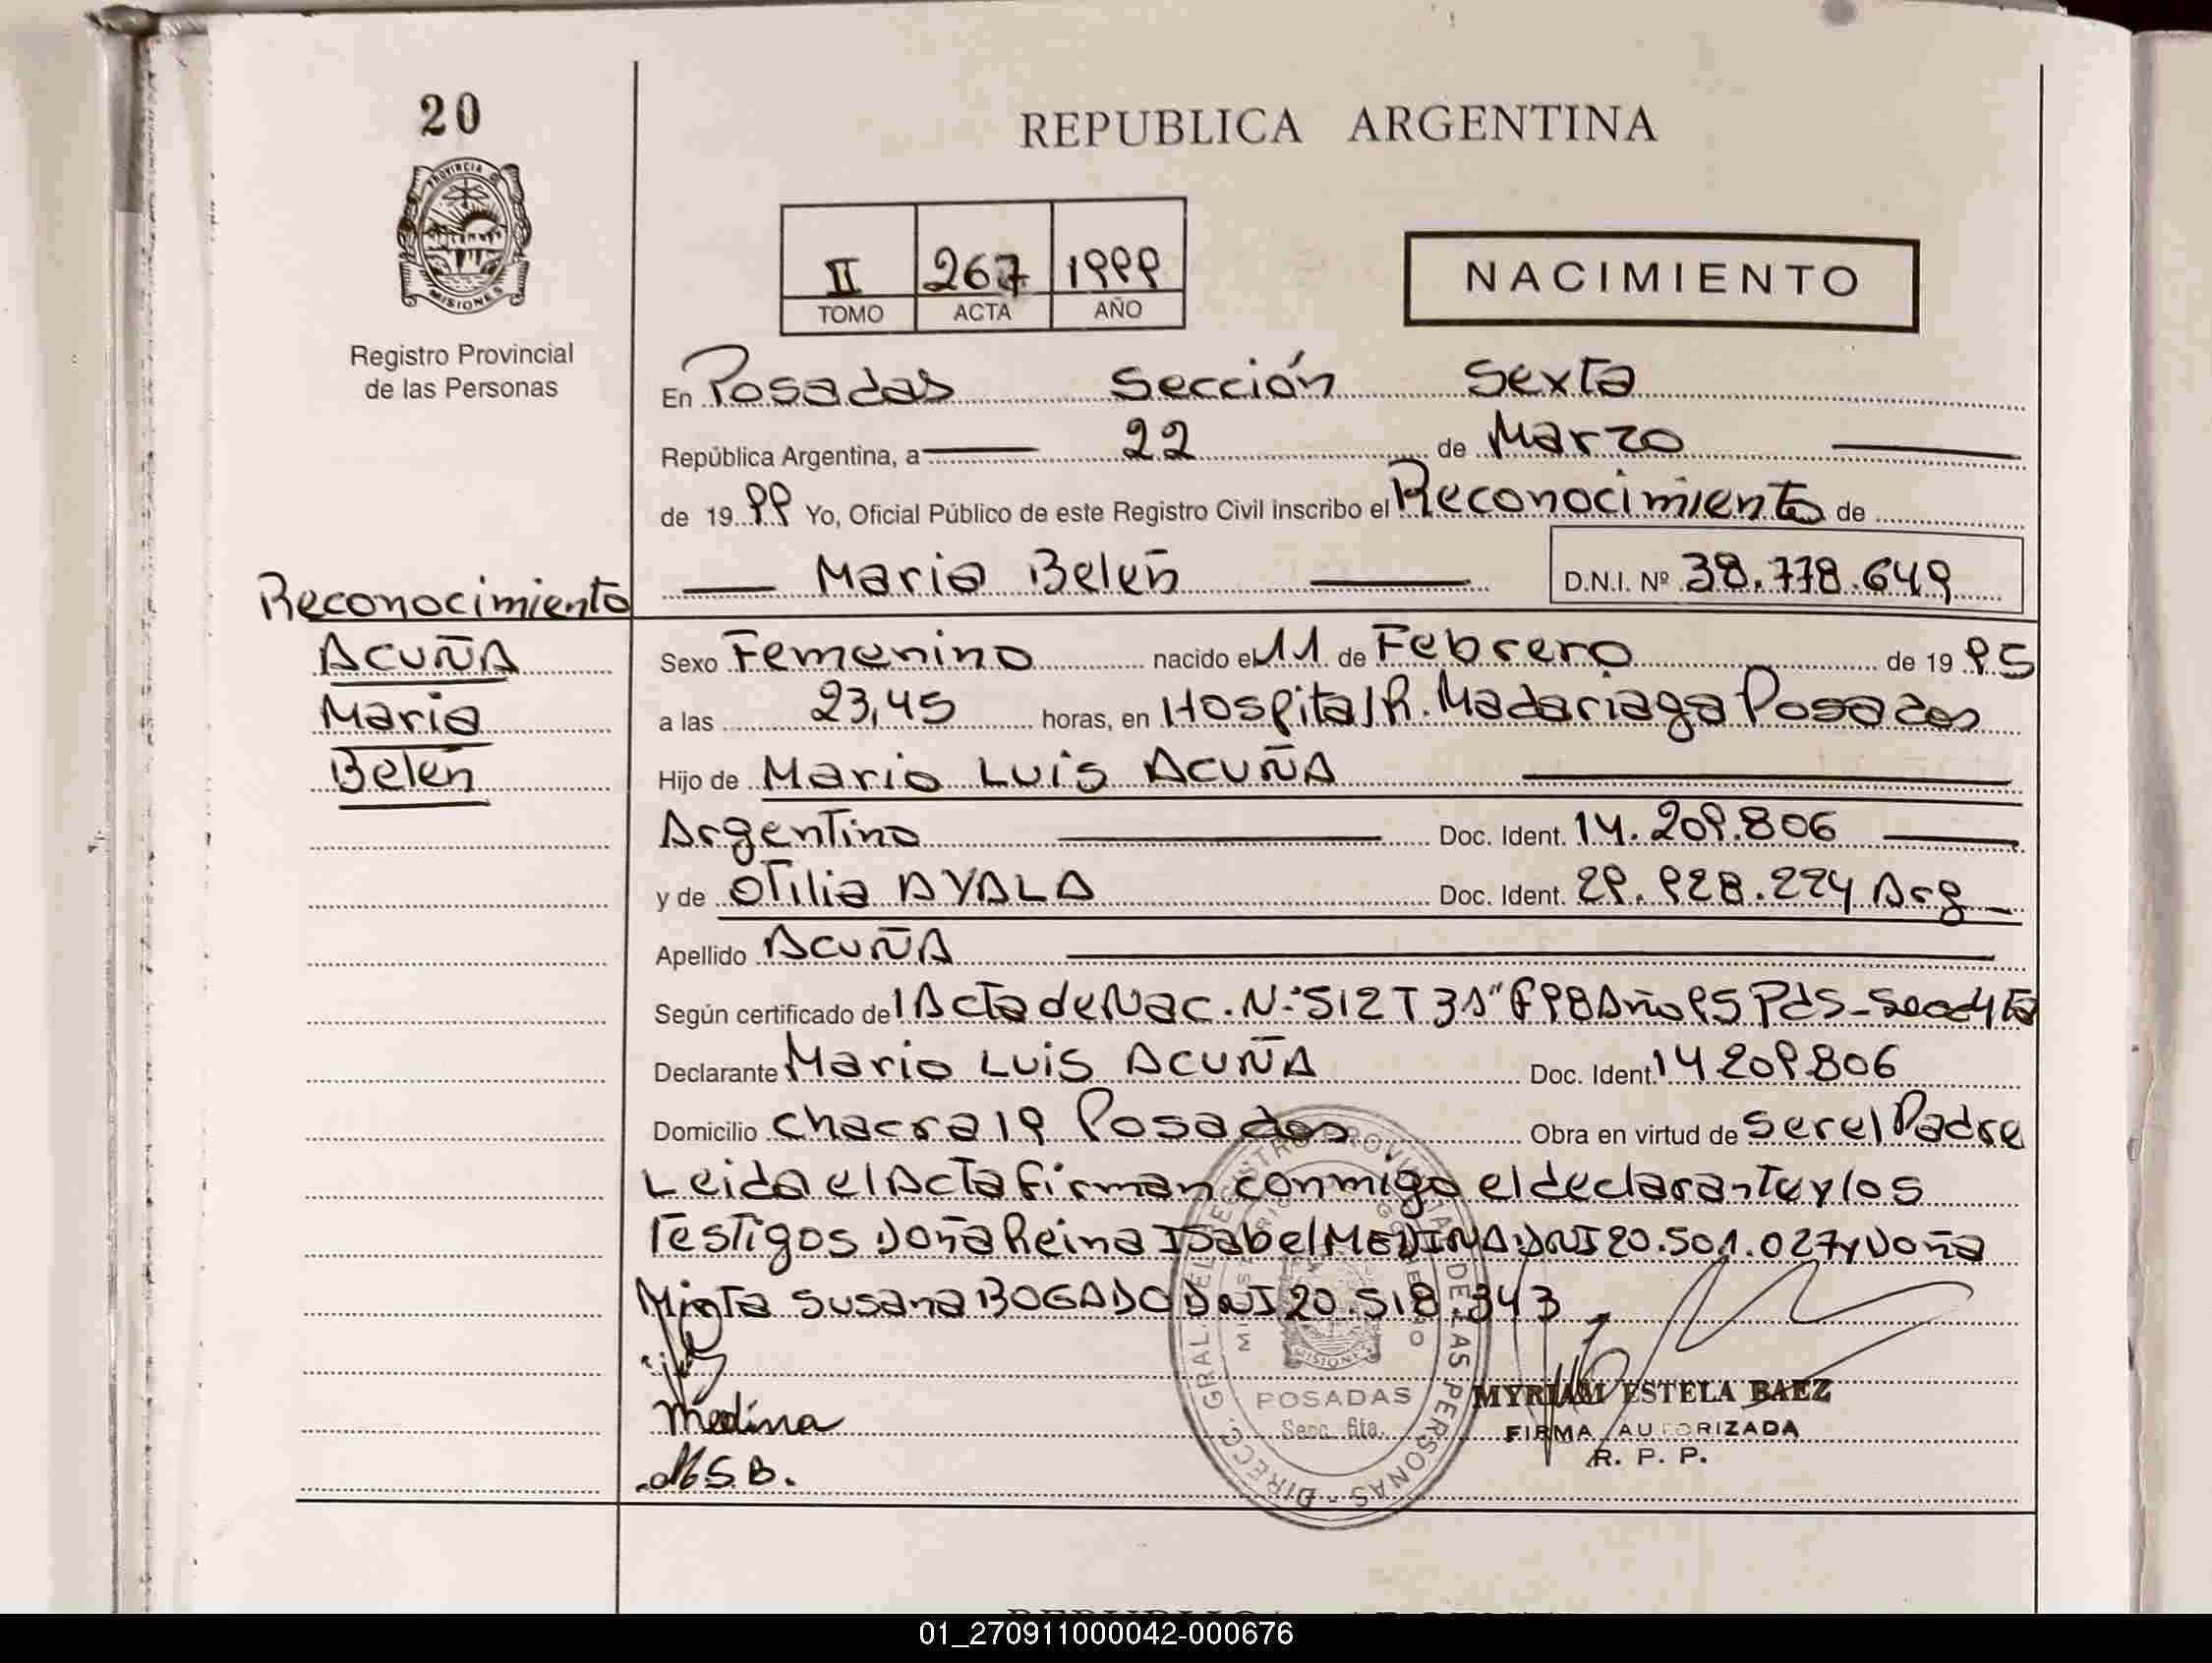 20
REPUBLICA ARGENTINA
PROVINCIA DE
MISIONES
Registro Provincial
de las Personas
II 267 1999
TOMO ACTA AÑO
NACIMIENTO
En Posadas Sección Sexta
República Argentina, a 22 de Marzo
de 1999 Yo, Oficial Público de este Registro Civil inscribo el Reconocimiento de
Maria Belén D.N.I. Nº 38.778.649
Reconocimiento
ACUÑA
Maria
Belén
Sexo Femenino nacido el 11 de Febrero de 1995
a las 23,45 horas, en Hospital R. Madariaga Posadas
Hijo de Mario Luis ACUÑA
Argentino Doc. Ident. 14.209.806
y de Otilia AYALA Doc. Ident. 29.928.224 Arg
Apellido ACUÑA
Según certificado del Acta de Nac. Nº 512 T 3A" F 98 Año 95 Pds - Secc 4ta
Declarante Mario Luis ACUÑA Doc. Ident. 14.209.806
Domicilio chacra 19 Posadas Obra en virtud de ser el Padre
Leida el Acta firman conmigo el declarante y los
Testigos Doña Reina Isabel MEDINA DNI 20.501.027 y Doña
Mirta Susana BOGADO DNI 20.518.343
Medina
M.S.B.
DIRECC. GRAL. DEL REGISTRO PROVINCIAL DE LAS PERSONAS
MISIONES
POSADAS
Secc. 6ta.
MYRIAM ESTELA BAEZ
FIRMA AUTORIZADA
R. P. P.
01_270911000042-000676